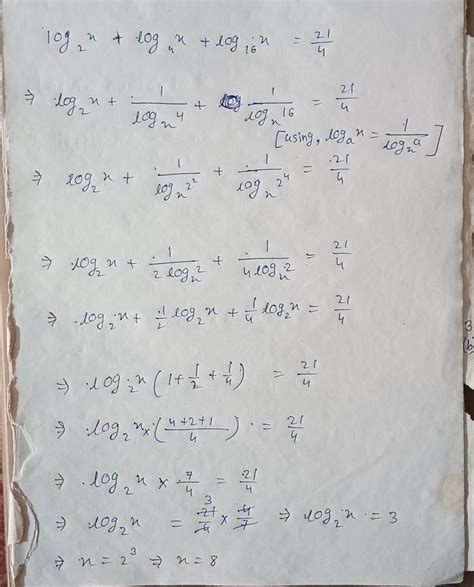 log₂x + log₄x + log₁₆x = 21/4
⇒ log₂x + 1/logₓ4 + 1/logₓ16 = 21/4
[using, logₐx = 1/logₓa]
⇒ log₂x + 1/logₓ2² + 1/logₓ2⁴ = 21/4
⇒ log₂x + 1/2logₓ2 + 1/4logₓ2 = 21/4
⇒ log₂x + 1/2 log₂x + 1/4 log₂x = 21/4
⇒ log₂x (1 + 1/2 + 1/4) = 21/4
⇒ log₂x × (4+2+1/4) = 21/4
⇒ log₂x × 7/4 = 21/4
⇒ log₂x = 21/4 × 4/7 3 ⇒ log₂x = 3
⇒ x = 2³ ⇒ x = 8
3
(b)